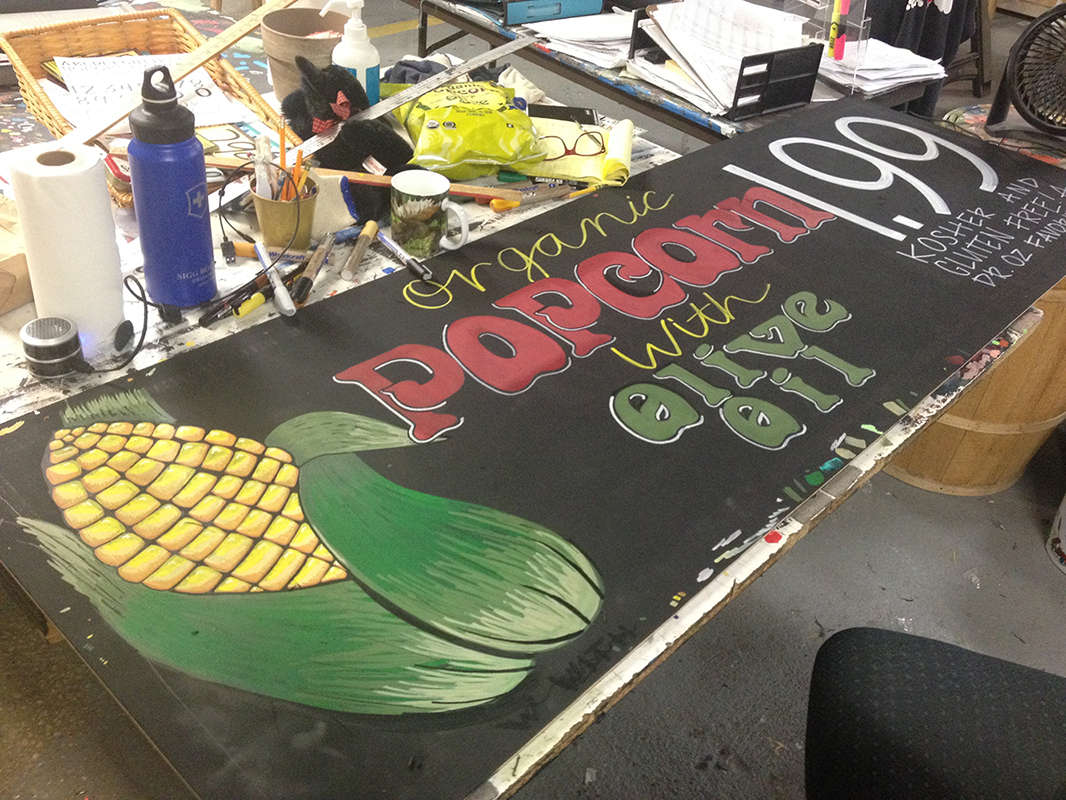 organic
POPCORN
with
Olive
Oil
1.99
KOSHER AND
GLUTEN FREE / A
DR. OZ FAVORI
SIGG